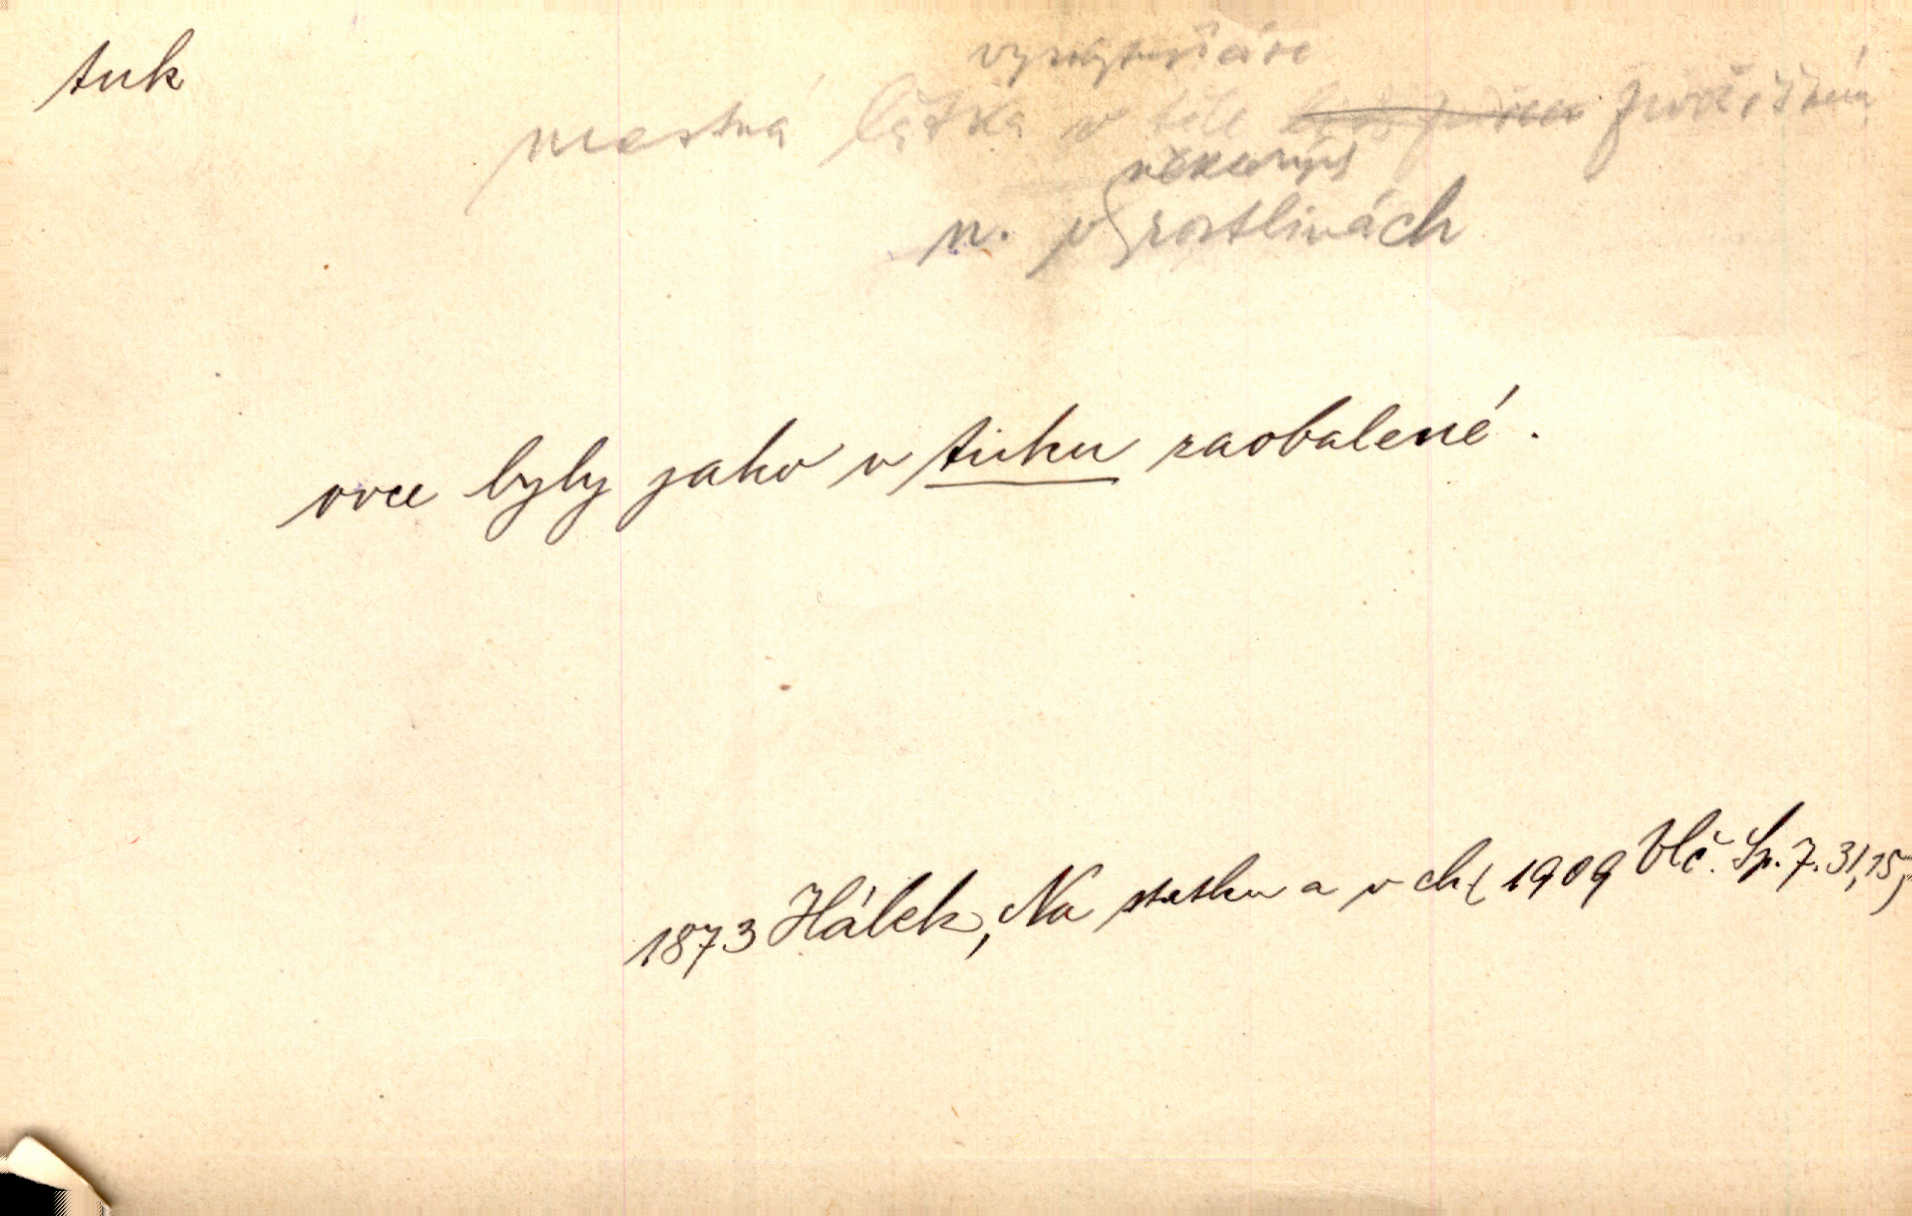 tuk
mastná látka v těle živočišném
některých
n. v rostlinách
ovce byly jako v tuku zaobalené.
1873 Hálek, Na statku a v ch (1909 Vlč. Sp. 7. 31,15)